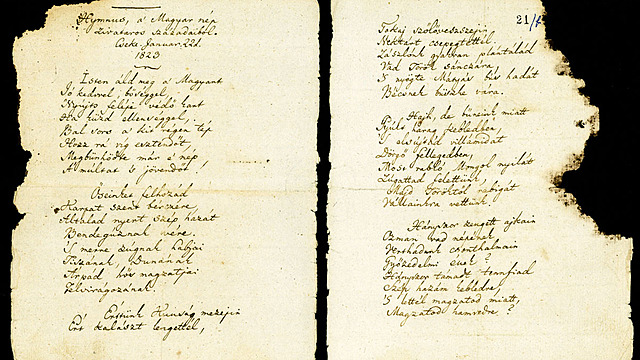 Hymnus, a' Magyar nép
zivataros századaiból.
Cseke Januar. 22d.
1823
Isten áldd meg a' Magyart
Jó kedvvel, bőséggel,
Nyújts feléje védő kart
Ha küzd ellenséggel,
Bal sors a' kit régen tép
Hozz rá víg esztendőt,
Megbűnhödte már e' nép
A' multat 's jövendőt!
Őseinket felhozád
Kárpát szent bérczére,
Általad nyert szép hazát
Bendegúznak vére.
'S merre zúgnak habjai
Tiszának, Dunának
Árpád hős magzatjai
Felvirágozának.
Értünk Kunság mezejin
Ért kalászt lengettél,
21/
Tokaj szőlővesszejin
Nektárt csepegtettél.
Zászlónk gyakran plántálád
Vad Török sánczára,
'S nyögte Mátyás bús hadát
Bécsnek büszke vára.
Hajh, de bűneink miatt
Gyúlt harag kebledben,
'S elsújtád villámidat
Dörgő fellegedben,
Most rabló Mongol nyilát
Zúgattad felettünk,
Majd Töröktől rabigát
Vállainkra vettünk.
Hányszor zengett ajkain
Ozman vad népének
Vert hadunk csonthalmain
Győzedelmi ének!
Hányszor támadt tenn fiad
Szép hazám kebledre,
'S lettél magzatod miatt,
Magzatod hamvedre?